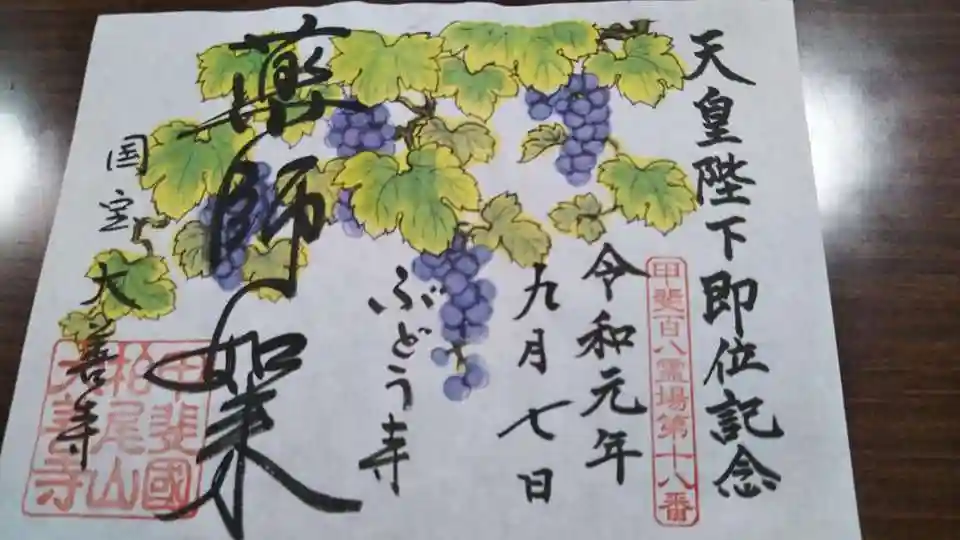 天皇陛下即位記念
甲斐百八霊場第十八番
令和元年
九月七日
ぶどう寺
薬師如来
国宝
大善寺
甲斐國
松尾山
大善寺